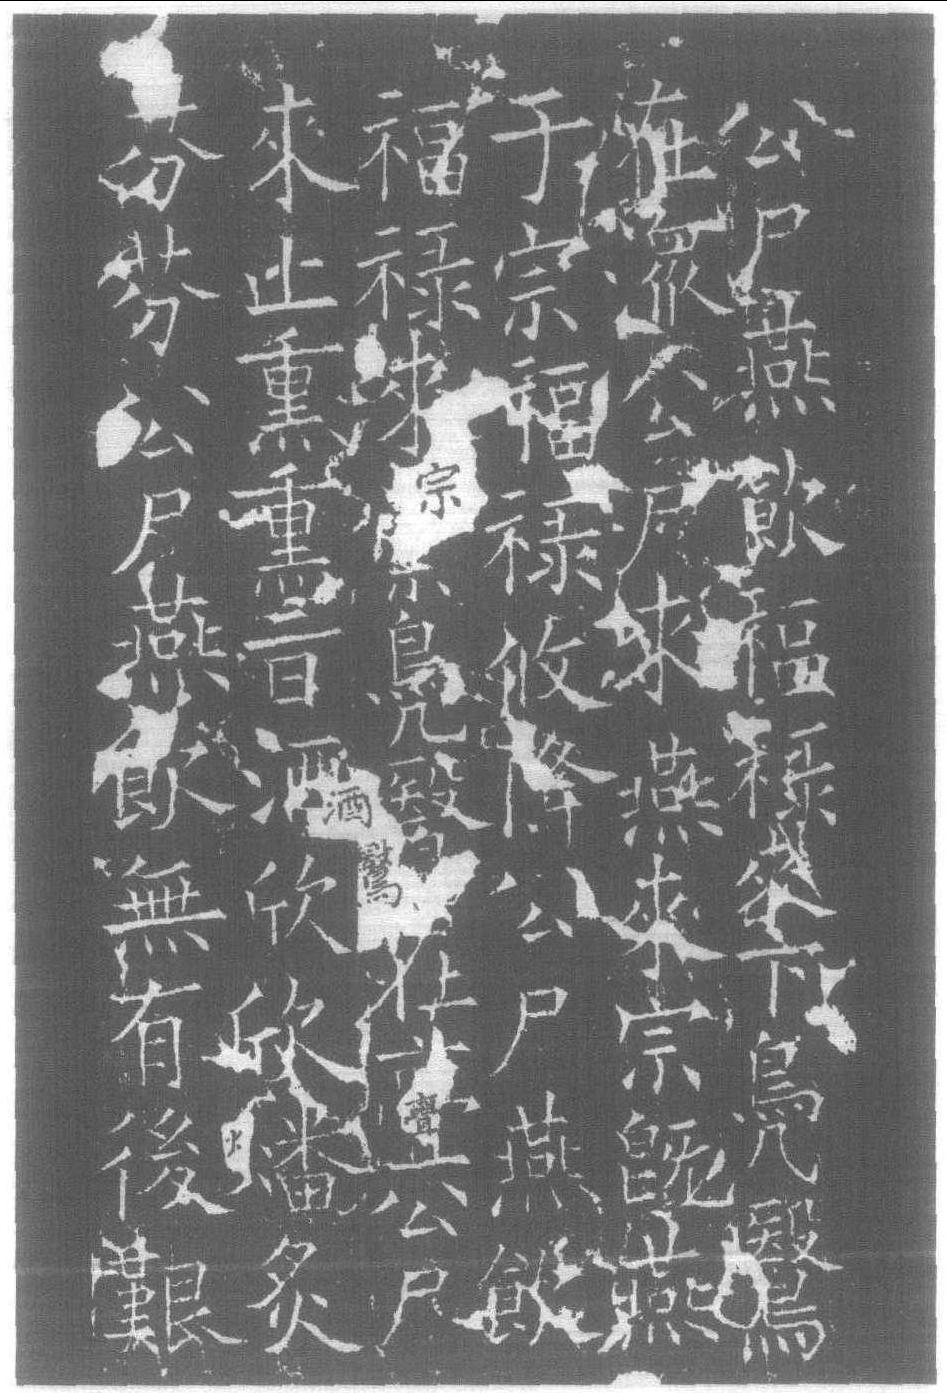 公尸燕飲福禄來下鳧鷖
在潀公尸來燕來宗既燕
于宗福禄攸降公尸燕飲
福禄來崇鳧鷖在亹公尸
來止熏熏旨酒欣欣燔炙
芬芬公尸燕飲無有後艱